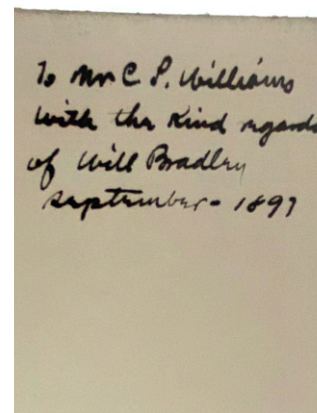 To Mr C. S. Williams
with the kind regards
of Will Bradley
September - 1897